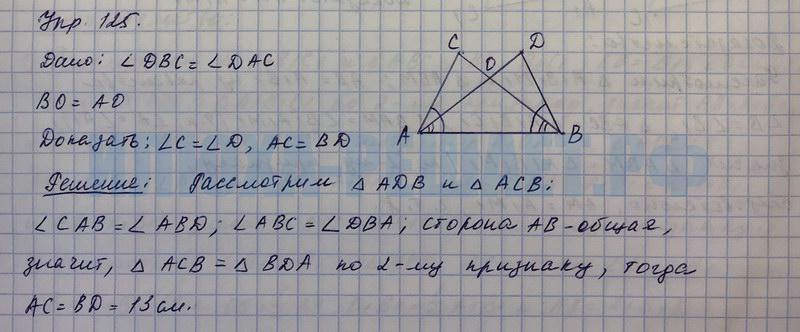 Упр. 125.
Дано: ∠DBC = ∠DAC
BO = AO
Доказать: ∠C = ∠D, AC = BD
Решение: Рассмотрим △ ADB и △ ACB:
∠CAB = ∠ABD; ∠ABC = ∠DBA; сторона AB - общая,
значит, △ ACB = △ BDA по 2-му признаку, тогда
AC = BD = 13 см.
C
D
O
A
B